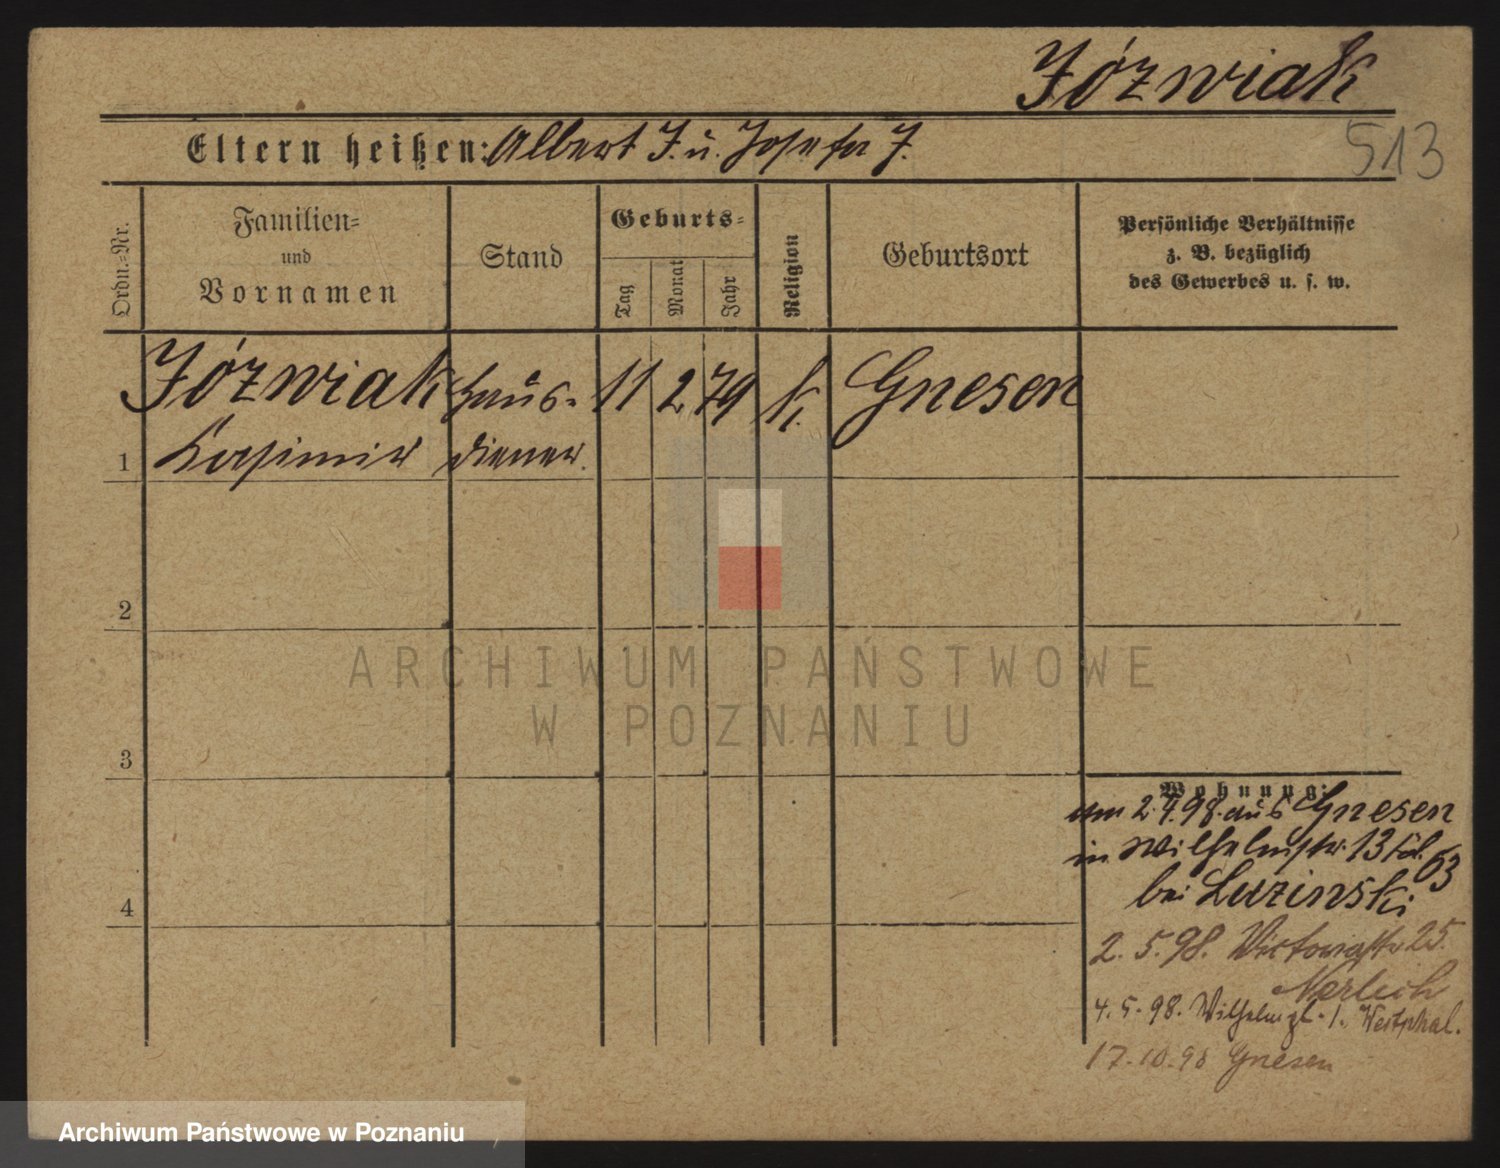 Józwiak
513
Eltern heißen: Albert J. u. Josefa J.
Ordn.-Nr.
Familien-
und
Vornamen
Stand
Geburts-
Tag
Monat
Jahr
Religion
Geburtsort
Persönliche Verhältnisse
z. B. bezüglich
des Gewerbes u. s. w.
Józwiak Haus- 11 2 79 k. Gnesen
1 Kasimir diener.
2
3
4
ARCHIWUM PAŃSTWOWE
W POZNANIU
Wohnung:
am 2.4.98. aus Gnesen
in Wilhelmstr. 13 63
bei Luzinski
2. 5. 98. Victoriastr 25.
Nerlich
4. 5. 98. Wilhelmpl. 1. Westphal.
17.10.98 Gnesen
Archiwum Państwowe w Poznaniu